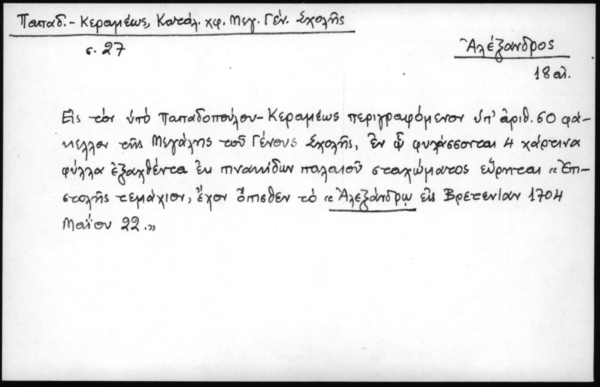 Παπαδ.- Κεραμέως, Κατάλ. χφ. Μεγ. Γέν. Σχολῆς
σ. 27
Ἀλέξανδρος
18 αἰ.
Εἰς τὸν ὑπὸ Παπαδοπούλου-Κεραμέως περιγραφόμενον ὑπ' ἀριθ. 60 φά-
κελλον τῆς Μεγάλης τοῦ Γένους Σχολῆς, ἐν ᾧ φυλάσσονται 4 χάρτινα
φύλλα ἐξαχθέντα ἐκ πινακίδων παλαιοῦ σταχώματος εὕρηται «Ἐπι-
στολῆς τεμάχιον, ἔχον ὄπισθεν τὸ «Ἀλεξάνδρῳ εἰς Βρετενίαν 1704
Μαΐου 22.»